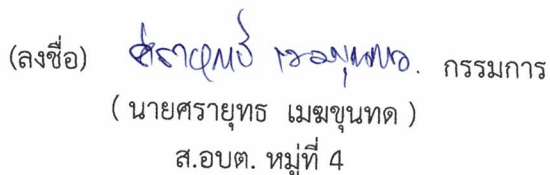 (ลงชื่อ) ศรายุทธ เมฆขุนทด. กรรมการ
( นายศรายุทธ เมฆขุนทด )
ส.อบต. หมู่ที่ 4